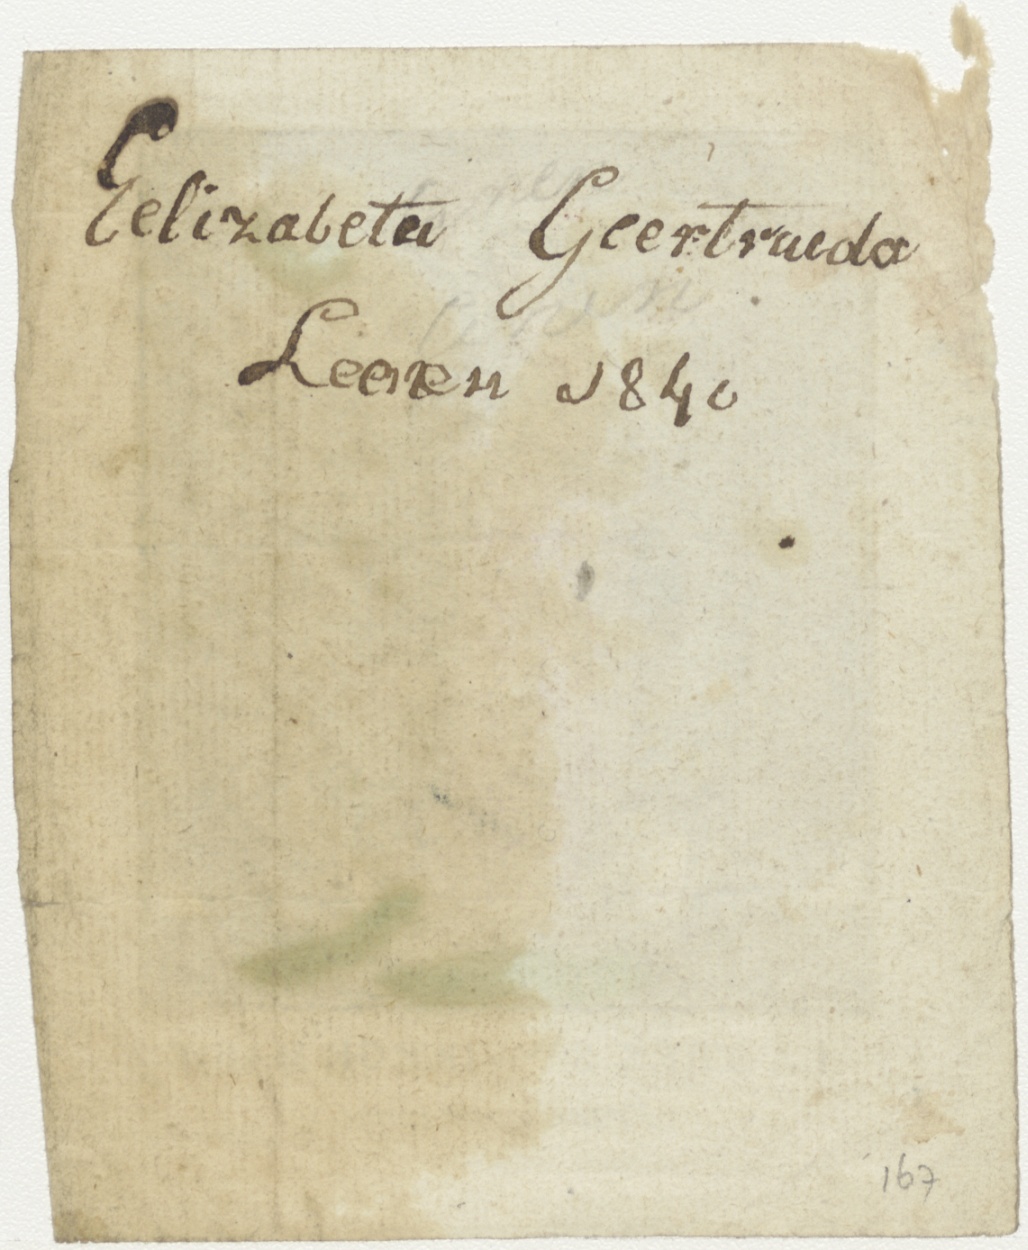 Eelizabeta Geertruda
Leenen 1840
167